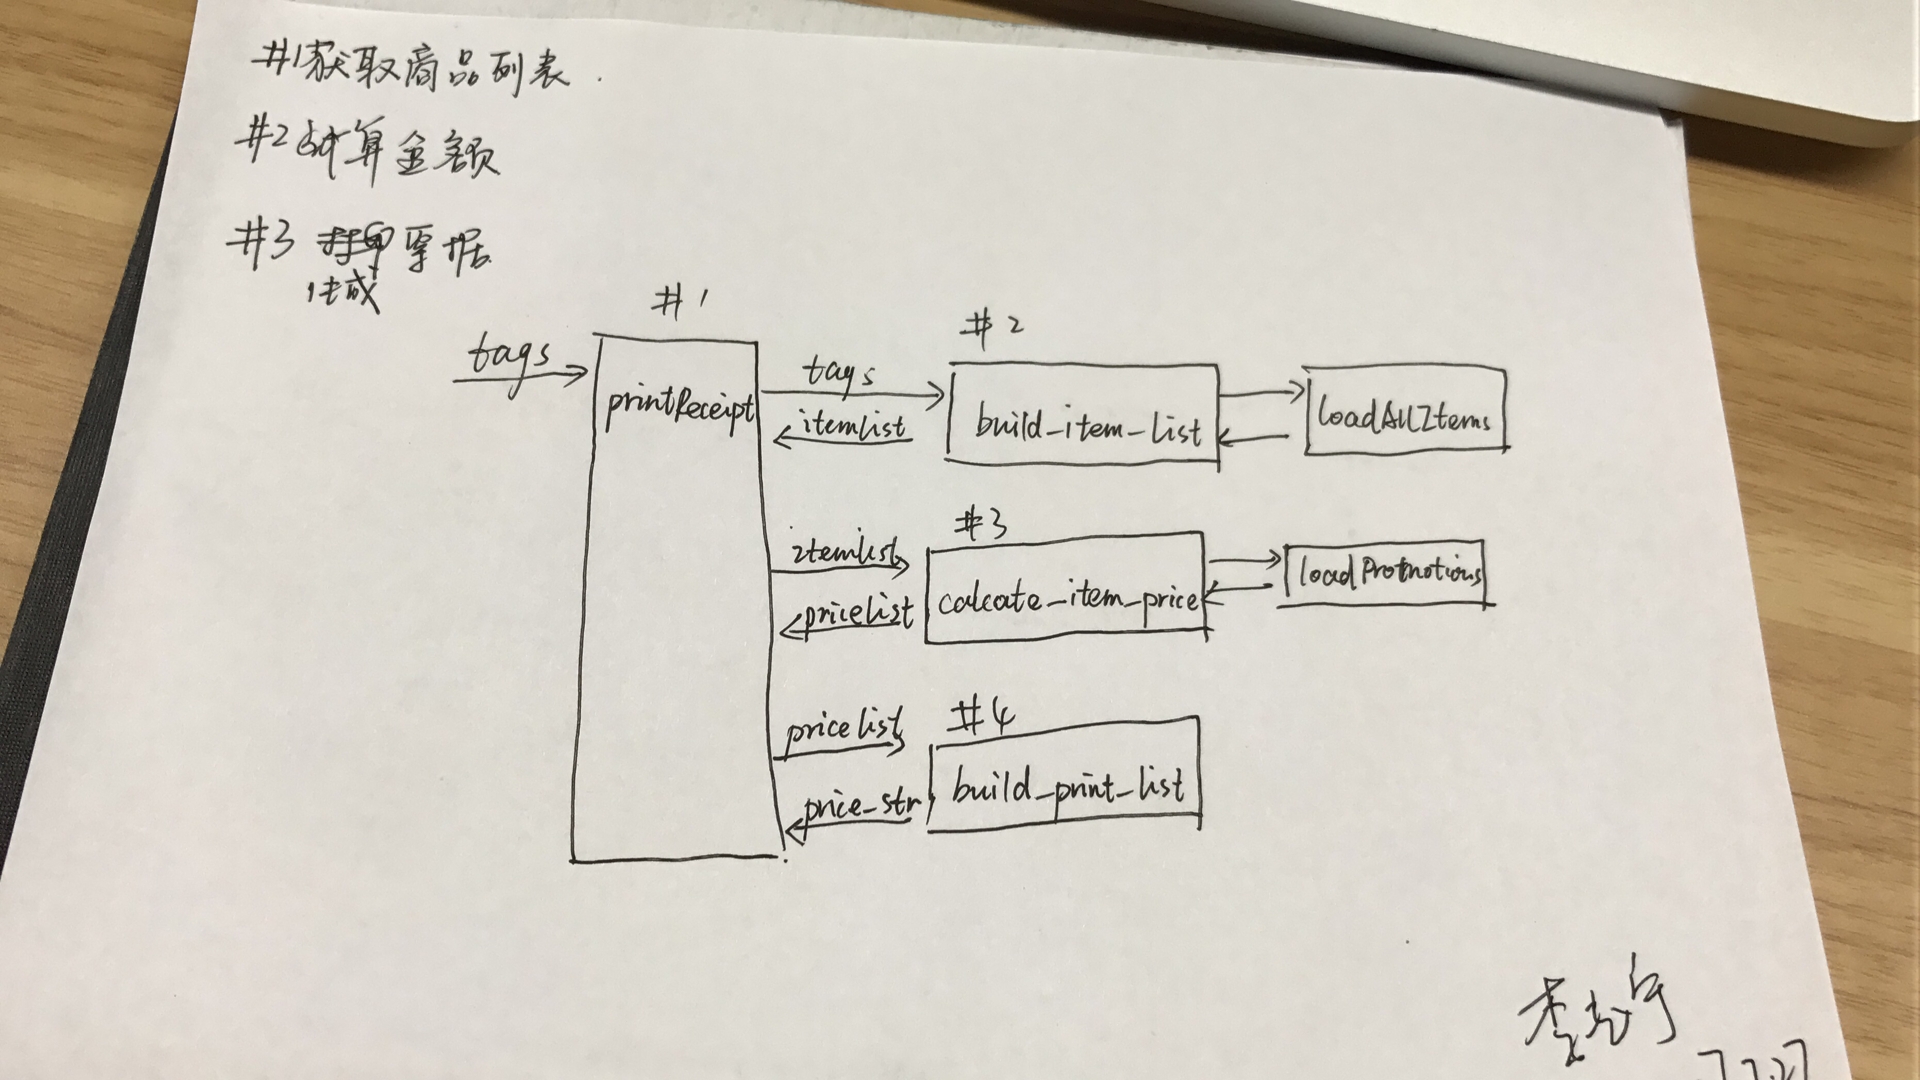 #1获取商品列表.
#2计算金额
#3 票据
生成
#1
tags
printReceipt
tags
itemlist
#2
build_item_list
loadAllItems
itemlist
pricelist
#3
calcate_item_price
loadPromotions
pricelist
price_str
#4
build_print_list